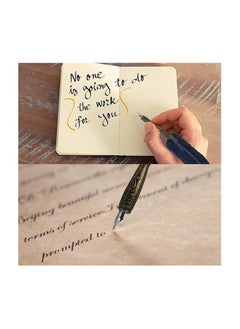 No one
is going to do
the work
for you
beautiful
terms of service
of changes
prompted to